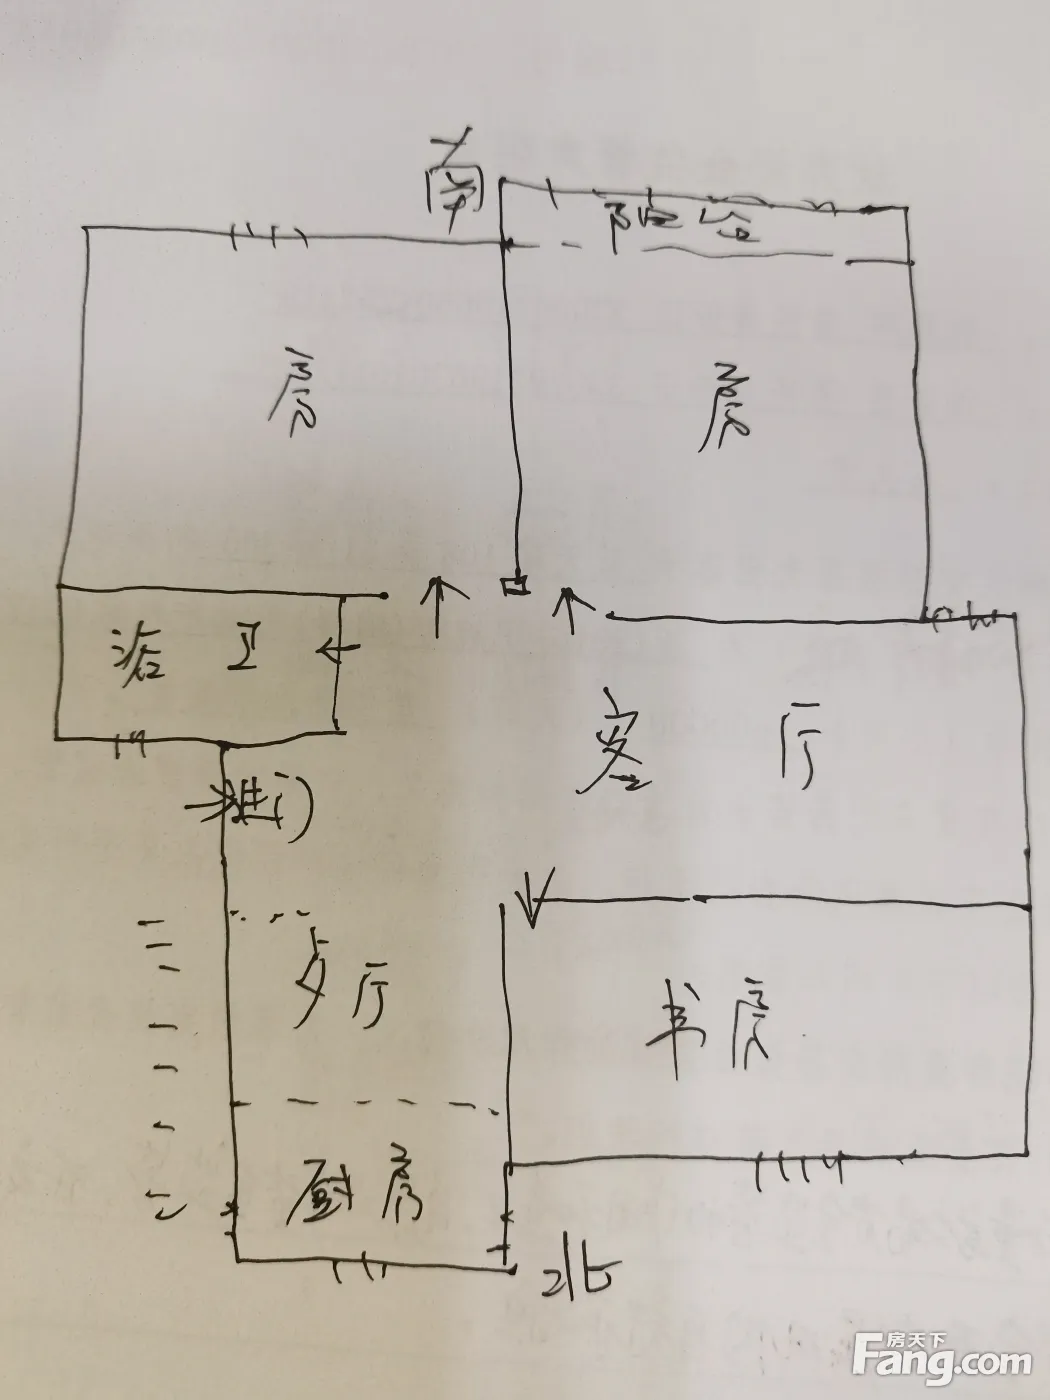 南
阳台
房
房
浴 卫
客 厅
推门
歺厅
书房
厨房
北
房天下
Fang.com